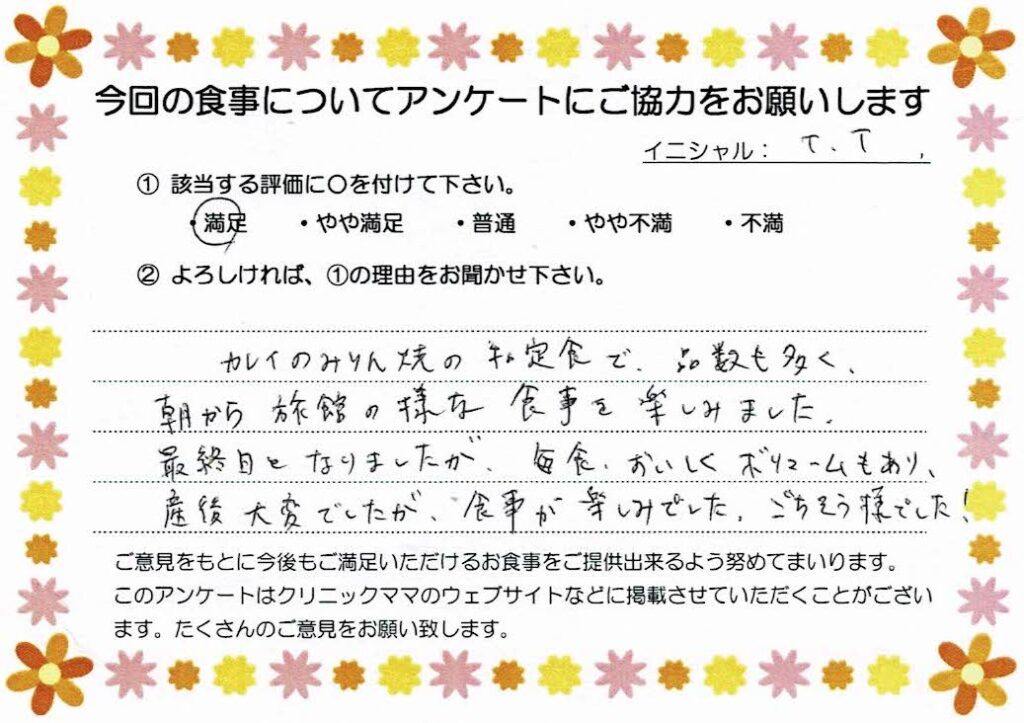 今回の食事についてアンケートにご協力をお願いします
イニシャル： T. T
① 該当する評価に〇を付けて下さい。
・満足 ・やや満足 ・普通 ・やや不満 ・不満
② よろしければ、①の理由をお聞かせ下さい。
カレイのみりん焼の和定食で、品数も多く、
朝から旅館の様な食事を楽しみました。
最終日となりましたが、毎食、おいしくボリュームもあり、
産後大変でしたが、食事が楽しみでした。ごちそう様でした！
ご意見をもとに今後もご満足いただけるお食事をご提供出来るよう努めてまいります。
このアンケートはクリニックママのウェブサイトなどに掲載させていただくことがござい
ます。たくさんのご意見をお願い致します。